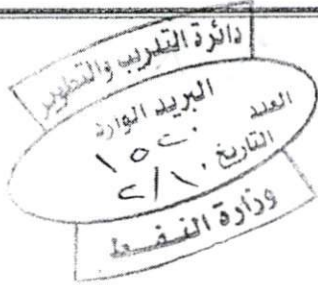 دائرة التدريب والتطوير
البريد الوارد
العدد ١٥٢٠
التاريخ ٢/١٠
وزارة النفط